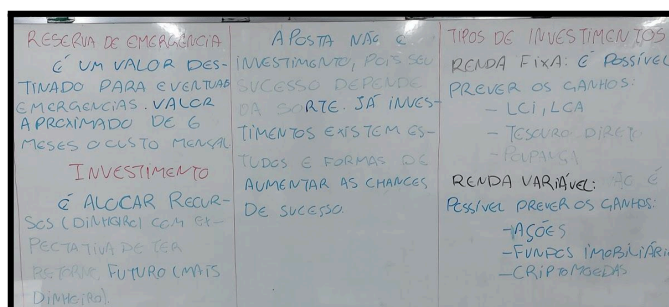 RESERVA DE EMERGÊNCIA
É UM VALOR DES-
TINADO PARA EVENTUAIS
EMERGENCIAS. VALOR
APROXIMADO DE 6
MESES O CUSTO MENSAL
INVESTIMENTO
É ALOCAR RECUR-
SOS (DINHEIRO) COM EX-
PECTATIVA DE TER
RETORNO FUTURO (MAIS
DINHEIRO).
APOSTA NÃO É
INVESTIMENTO, POIS SEU
SUCESSO DEPENDE
DA SORTE. JÁ INVES-
TIMENTOS EXISTEM ES-
TUDOS E FORMAS DE
AUMENTAR AS CHANCES
DE SUCESSO.
TIPOS DE INVESTIMENTOS
RENDA FIXA: É POSSÍVEL
PREVER OS GANHOS:
- LCI, LCA
- TESOURO DIRETO
- POUPANÇA
RENDA VARIÁVEL: NÃO É
POSSÍVEL PREVER OS GANHOS:
- AÇÕES
- FUNDOS IMOBILIÁRIO
- CRIPTOMOEDAS